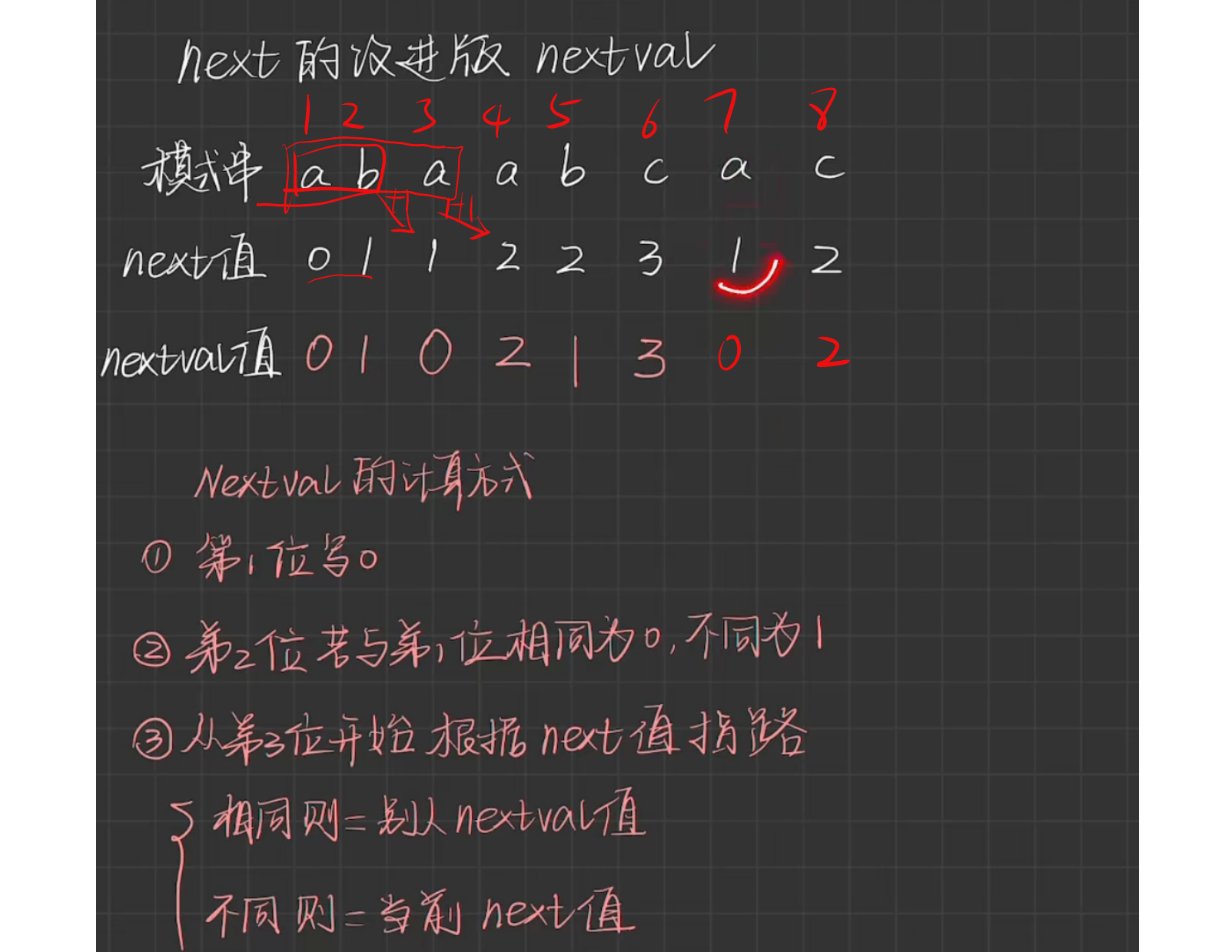 next的改进版 nextval
1 2 3 4 5 6 7 8
模式串 a b a a b c a c
+1 +1
next值 0 1 1 2 2 3 1 2
nextval值 0 1 0 2 1 3 0 2
Nextval的计算方式
① 第1位写0
② 第2位若与第1位相同为0,不同为1
③ 从第3位开始 根据next值指路
相同则=别人nextval值
不同则=当前next值